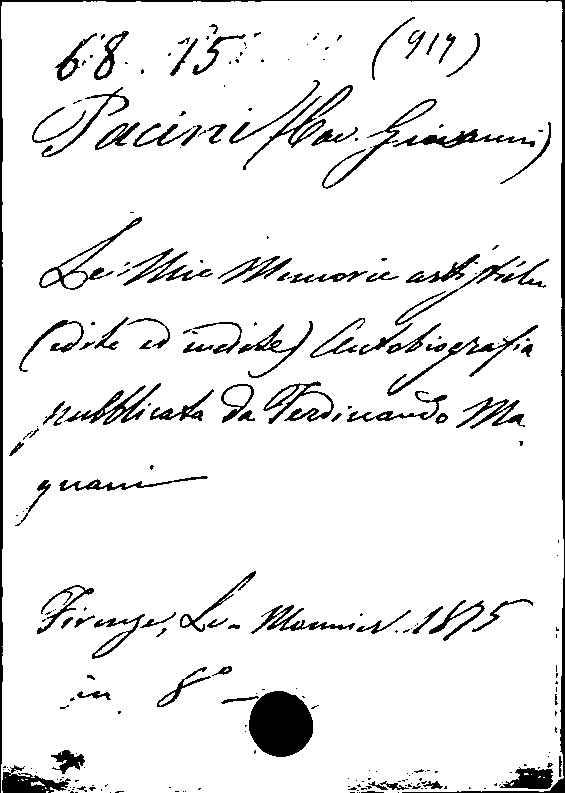 68. 15. (917)
Pacini (Cav. Giovanni)
Le Mie Memorie artistiche
(edite ed inedite) Autobiografia
pubblicata da Ferdinando Ma
gnani
Firenze, Le-Monnier. 1875
in 8°